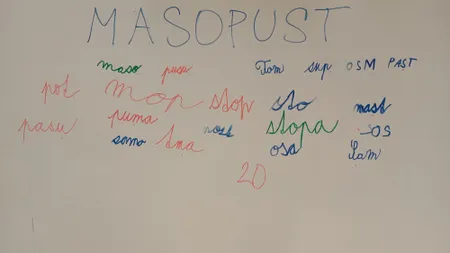 MASOPUST
maso pusu Tom sup OSM PAST
pot mop stop sto mast
pasu puma stopa OS
somo tma nost osa Sam
20